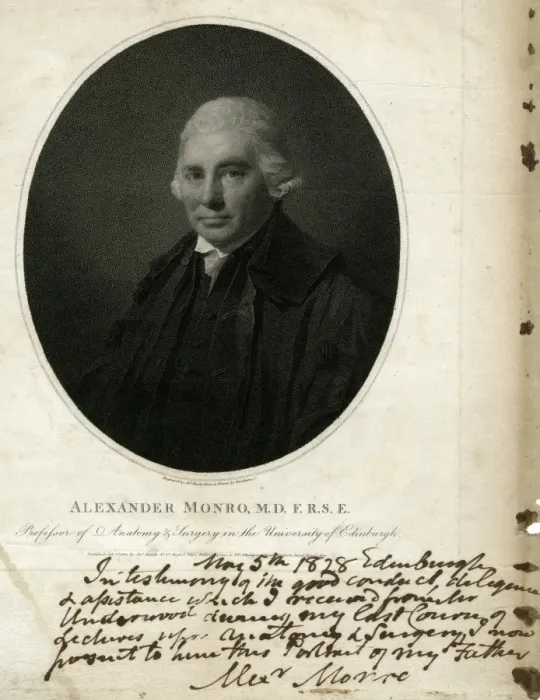 ALEXANDER MONRO, M.D. F.R.S.E.
Professor of Anatomy & Surgery in the University of Edinburgh.
May 5th 1828 Edinburgh
In testimony of the good conduct, diligence
& assistance which I received from Mr
Underwood during my last Course of
Lectures upon Anatomy & Surgery, I now
present to him this Portrait of my Father
Alexr Monro